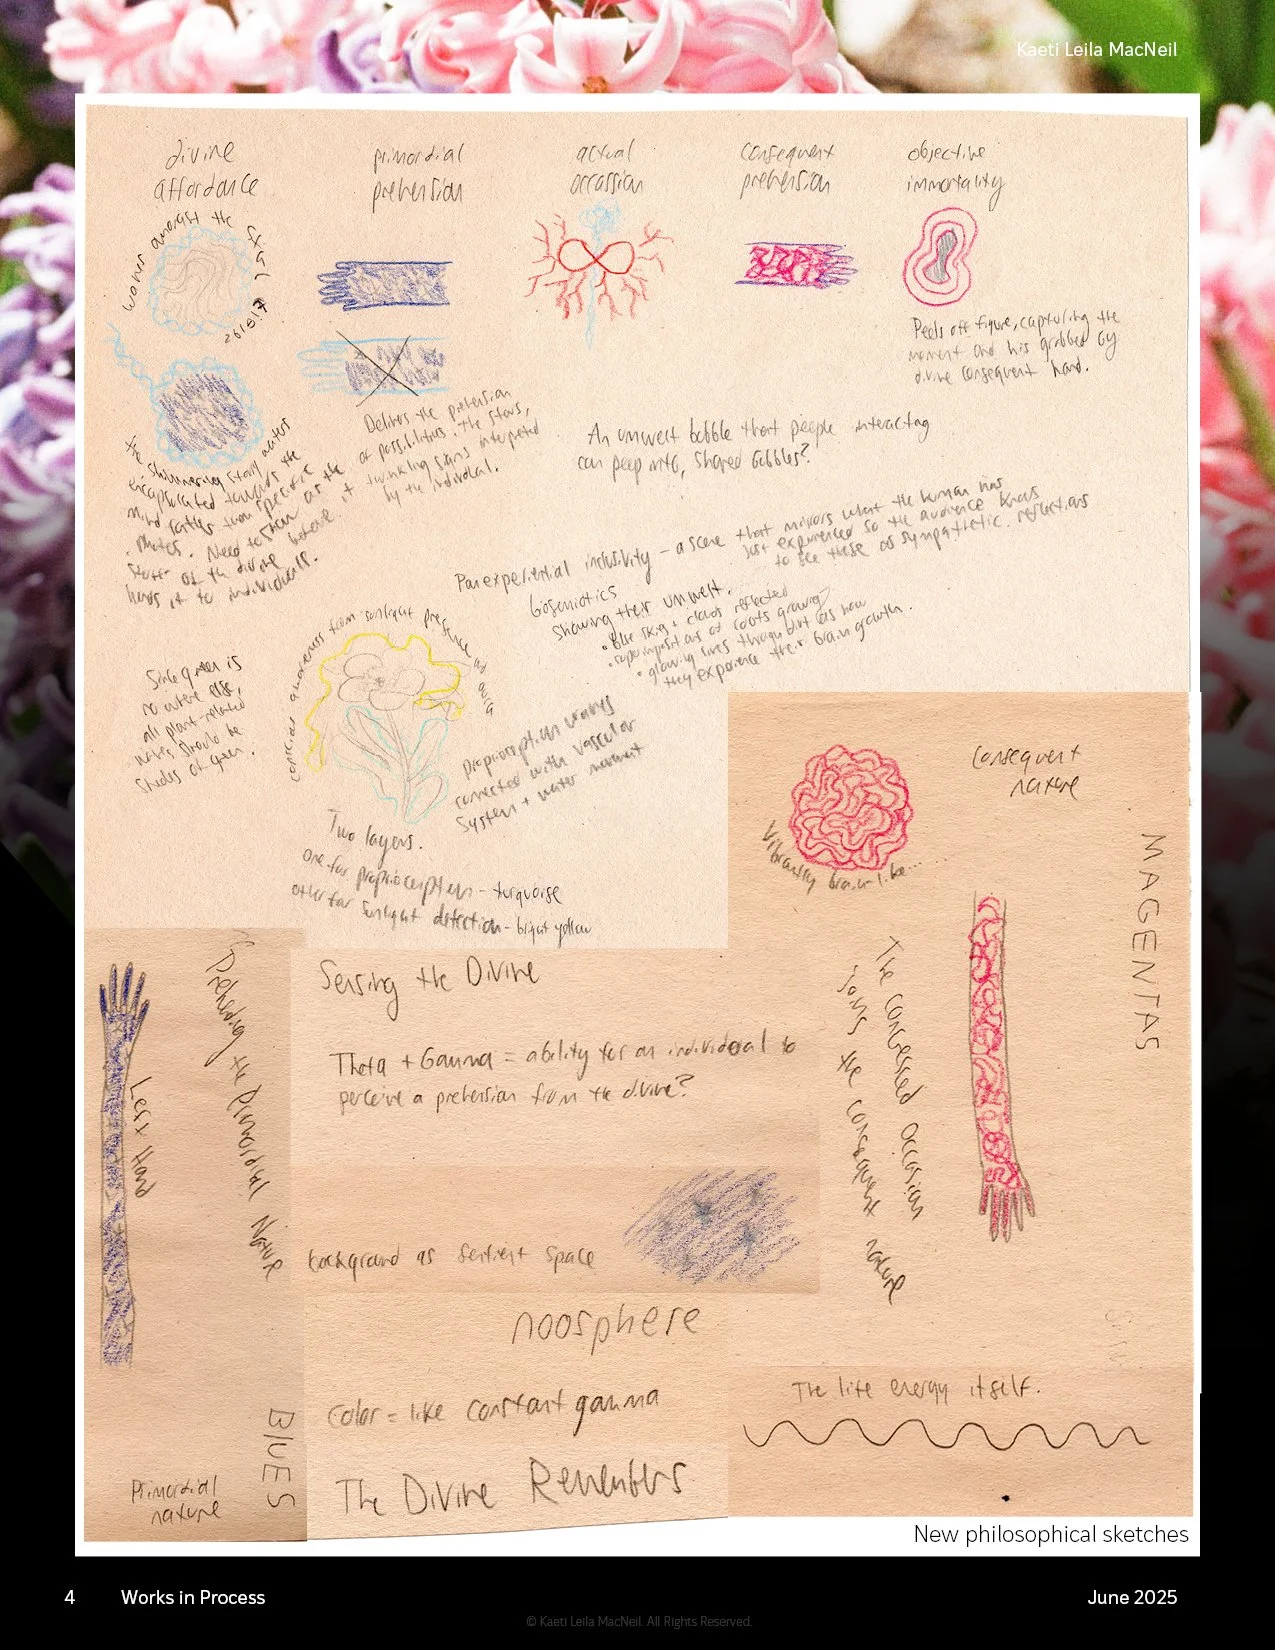 Kaeti Leila MacNeil
divine
affordance
primordial
prehension
actual
occassion
consequent
prehension
objective
immortality
waves amongst the
field
Peels off figure, capturing the
moment and his grabbed by
divine consequent hand.
Delivers the prehension
of possibilities. The stars,
twinkling signs interpreted
by the individual.
the shimmering starry waters
encapsulated towards the
mind rather than specific
photos. Need to show as the
stuff of the divine before it
hands it to individuals.
An umwelt bubble that people interacting
can peep into, shared bubbles?
Panexperiential inclusivity – a scene that mirrors what the human has
just experienced so the audience knows
to see these as sympathetic reflections
biosemiotics
showing their umwelt.
• Blue skies + clouds reflected
• superimpositions of roots growing
• glowing lines throughout as how
they experience their brain growth.
conscious awareness from sunlight presence
Since green is
no where else,
all plant-related
waves should be
shades of green.
proprioception waves
connected with vascular
system + water movement
Two layers.
One for proprioception – turquoise
other for sunlight detection – bright yellow
Consequent
nature
Vibrantly brain-like...
MAGENTAS
The concresced occasion
joins the consequent nature
Prehending the Primordial Nature
Left Hand
Sensing the Divine
Theta + Gamma = ability for an individual to
perceive a prehension from the divine?
background as sentient space
noosphere
Color = like constant gamma
The Divine Remembers
BLUES
Primordial
nature
The life energy itself.
New philosophical sketches
4 Works in Process
June 2025
© Kaeti Leila MacNeil. All Rights Reserved.